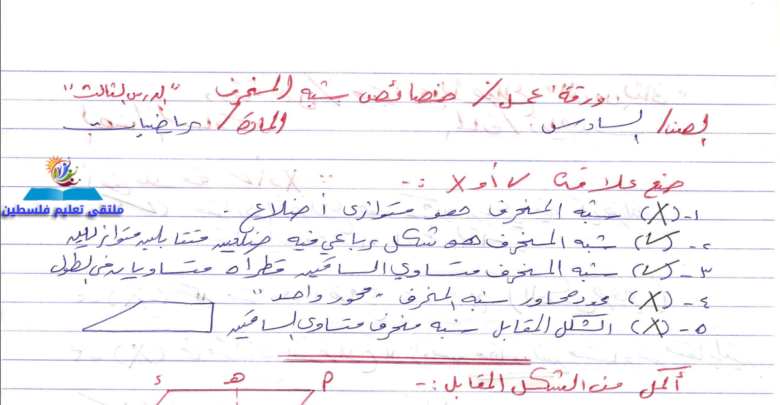 ورقة عمل / خصائص شبه المنحرف "الدرس الثالث"
الصف / السادس. المادة / رياضيات
ضع علامة √ أو X :-
١- (X) شبه المنحرف هو متوازي أضلاع.
٢- (√) شبه المنحرف هو شكل رباعي فيه ضلعين متقابلين متوازيين
٣- (√) شبه المنحرف متساوي الساقين قطراه متساويان في الطول
٤- (X) عدد محاور شبه المنحرف "محور واحد"
٥- (X) الشكل المقابل شبه منحرف متساوي الساقين
أكمل من الشكل المقابل :-
أ هـ د
ملتقى تعليم فلسطين